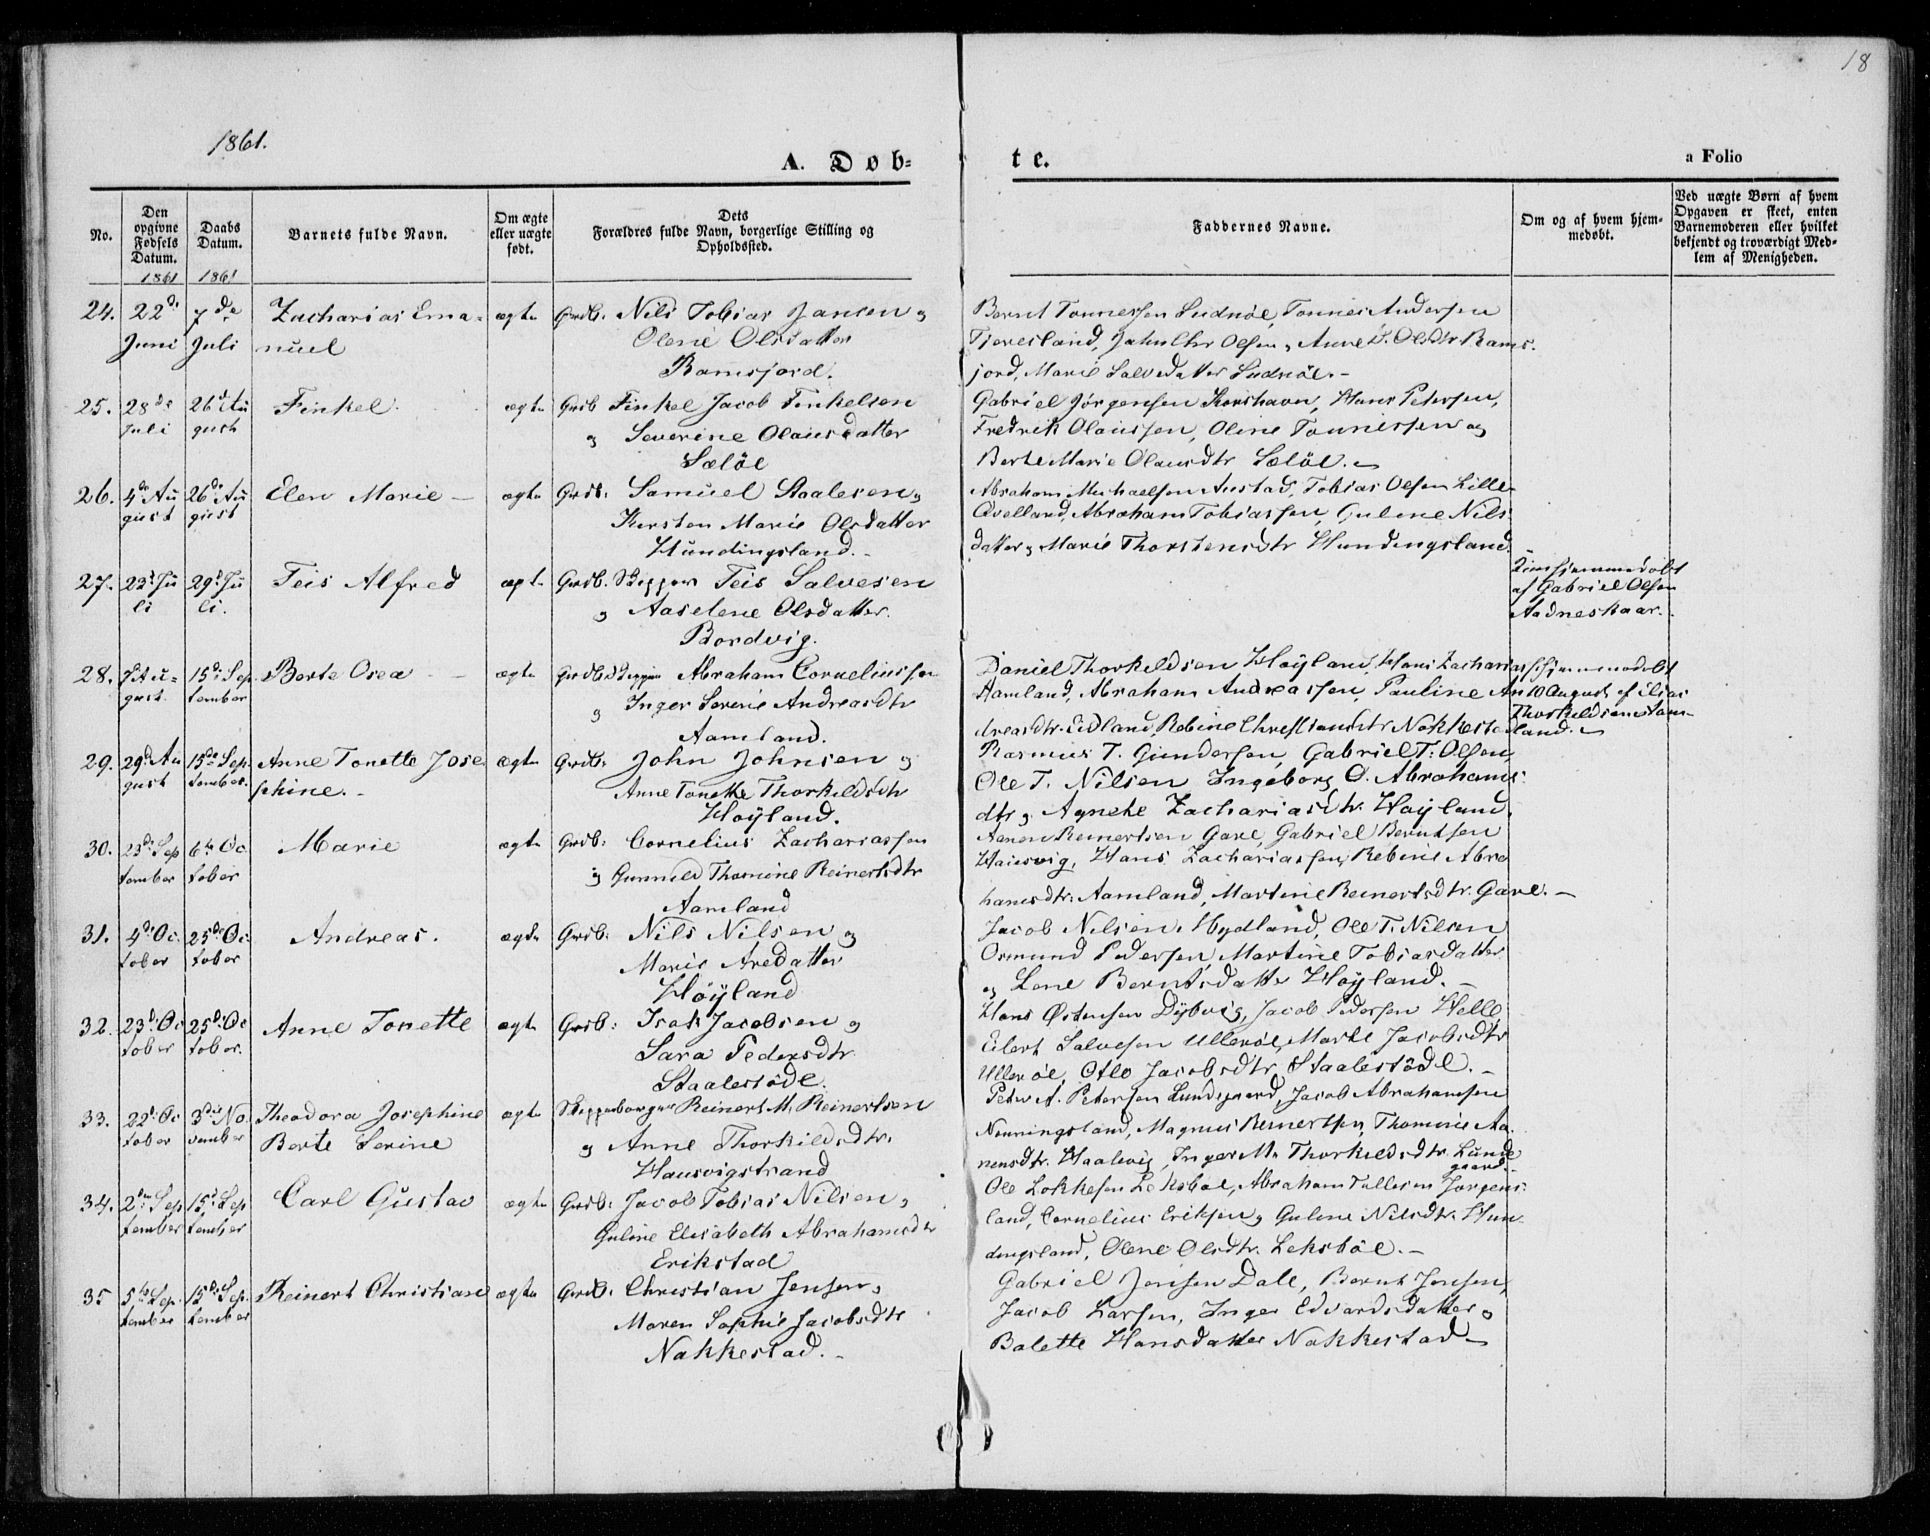 18
1861.
A. Døb-
te.
a Folio
No.
Den opgivne Fødsels Datum.
1861
Daabs Datum.
1861
Barnets fulde Navn.
Om ægte eller uægte født.
Dets
Forældres fulde Navn, borgerlige Stilling og
Opholdssted.
Faddernes Navne.
Om og af hvem hjem-
medøbt.
Ved uægte Børn af hvem
Opgaven er skeet, enten
Barnemoderen eller hvilket
bekjendt og troværdigt Med-
lem af Menigheden.
24. 22de 7de Zacharias Ema- ægte Grdb. Nils Tobias Jansen og
Juni Juli nuel Olene Olsdatter
Ramsjord.
Bernt Tønnessen Sudnöe, Tønnes Andersen
Tjøresland, Jahn Chr Olsen, Anne Olsdtr Rams-
jord, Marie Salvedatter Sudnöe.-
25. 28de 26d Au Finkel ægte Grdb Finkel Jacob Finkelsen
Juli gust og Severine Olausdatter
Sælöe
Gabriel Jörgensen Korshavn, Hans Petersen,
Fredrik Olaussen, Olene Tønnessen og
Berte Marie Olausdtr Sælöe.
26. 4de Au 26de Au Elen Marie - ægte Grdb: Samuel Staalesen og
gust gust Kirsten Marie Olsdatter
Hundingsland.-
Abraham Michaelsen Austad, Tobias Olsen Lille-
Qvelland, Abraham Tobiassen, Guline Nils-
datter og Marie Thorstensdtr Hundingsland.
27. 23d Ju 29d Ju Teis Alfred ægte Grdb. Skipper Teis Salvesen
li li. og Aaselene Olsdatter.
Bordvig.
hjemmedöbt
af Gabriel Olsen
Aadneskaar.
28. Au- 15de Sep Berte Osea - ægte Grdb Skipper Abraham Corneliussen
gust. tember og Inger Serine Andreasdtr
Aamland.
Daniel Thorkeldsen Höyland, Hans Zacharias
Aamland, Abraham Andreassen, Pauline An
dreasdtr. Eidland, Rebine Christiansdtr Nakkestad
hjemmedöbt
10 August af Elias
Thorkeldsen Aam-
land.
29. 29d Au 15de Sep Anne Tonette Jose ægte Grdb: John Johnsen og
gust tember. phine.- Anne Tonette Thorkeldsdtr
Höyland.
Rasmus T. Gundersen, Gabriel T. Olsen,
Ole T. Nilsen Ingeborg O. Abrahams-
dtr og Agnete Zachariasdtr. Höyland.
30. 23de Sep 6te Oc Marie ægte Grdb: Cornelius Zachariassen
tember tober og Gunnild Thomine Reinertsdtr
Aamland
Aanen Reinertsen Gare, Gabriel Berntsen
Hausvig, Hans Zachariassen, Rebine Abra
hamsdtr. Aamland, Martine Reinertsdtr. Gare.-
31. 4de Oc. 25de Oc. Andreas. ægte Grdb: Nils Nilsen og
tober tober Marie Aredatter
Höÿland
Jacob Nilsen Hydland, Ole T. Nilsen
Osmund Pedersen, Martine Tobiasdatter
og Lene Berntsdatter Höyland.-
32. 23de Oc 25de Oc Anne Tonette ægte Grdb: Isak Jacobsen og
tober tober. Sara Pedersdtr
Staalestöde.
Hans Østensen Dÿbvig, Jacob Pedersen Helle
Eilert Salvesen Ulleröe, Marte Jacobsdtr
Ulleröe, Otlo Jacobsdtr Staalestöde.-
33. 22de Oc 3die No Theodora Josephine ægte Skipperborger Reinert M. Reinertsen
tober vember Berte Serine og Anne Thorkildsdtr.
Hausvigstrand
Peter A. Petersen Lundegaard, Jacob Abrahamsen
Nenningsland, Magnus Reinertsen, Thomine Aa-
nensdtr. Haalevig, Inger M. Thorkildsdtr Lunde
gaard.-
34. 2den Sep 15de Sep Carl Gustav ægte Grdb: Jacob Tobias Nilsen og
tember tember Guline Elisabeth Abrahamsdtr
Erikstad
Ole Lokkesen Leksböe, Abraham Tallesen Jörgens-
land, Cornelius Eriksen og Guline Nilsdtr. Hun-
dingsland, Olene Olsdtr. Leksböe.-
35 5te Sep. 15de Sep. Reinert Christian ægte Grdb: Christian Jensen og
tember tember Maren Sophie Jacobsdtr
Nakkestad.-
Gabriel Jensen Dale, Bernt Jensen,
Jacob Larsen, Inger Edvardsdatter og
Balette Hansdatter Nakkestad-